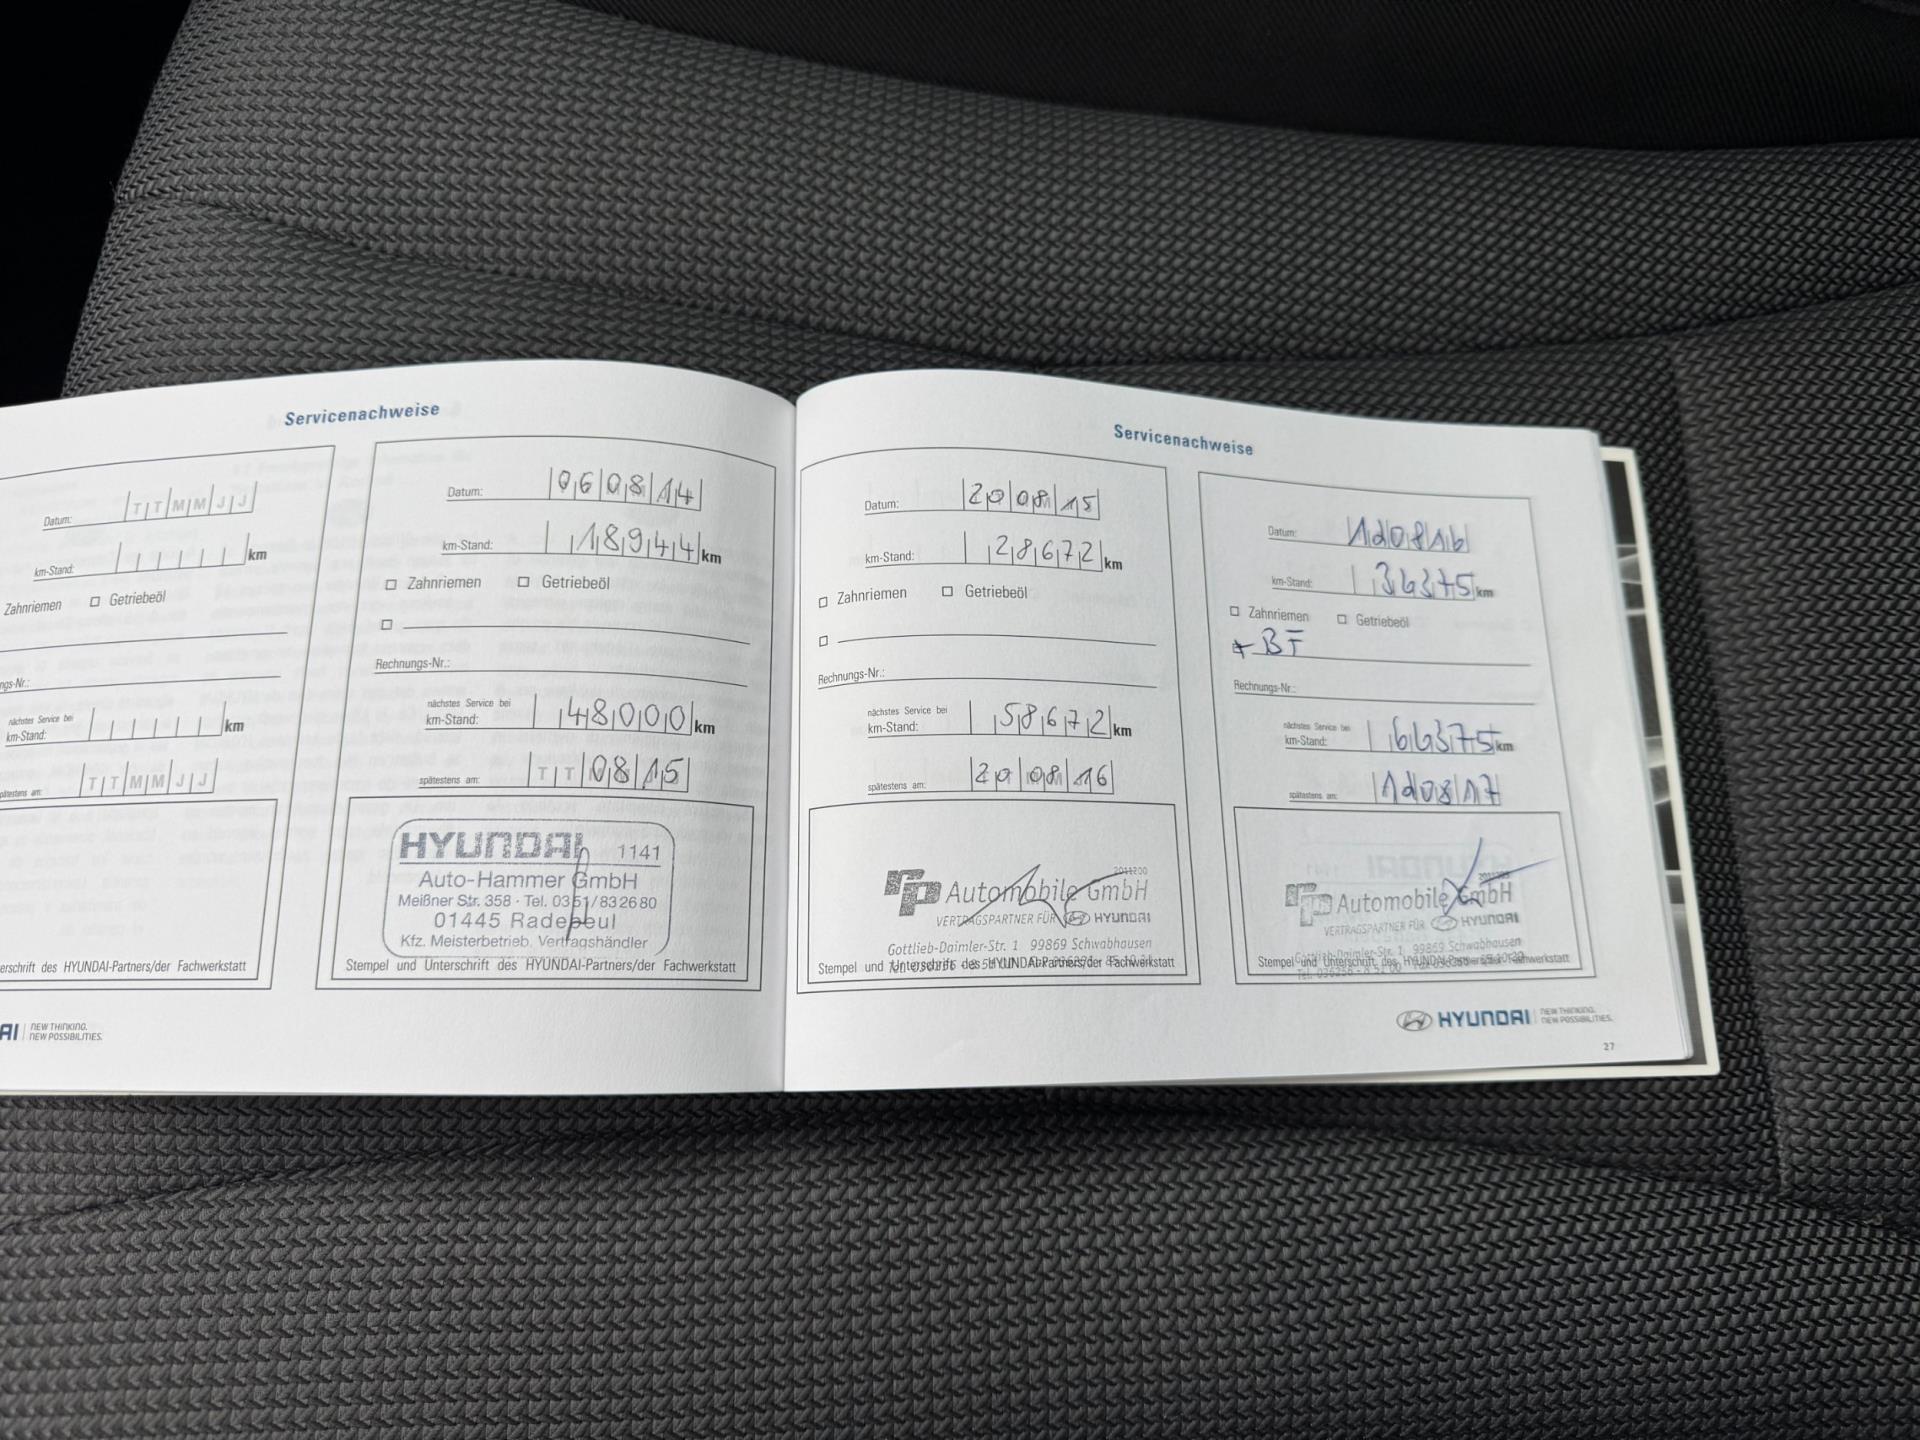 Servicenachweise
Datum: T T M M J J
km-Stand: km
Zahnriemen Getriebeöl
ngs-Nr.:
nächstes Service bei
km-Stand: km
spätestens am: T T M M J J
erschrift des HYUNDAI-Partners/der Fachwerkstatt
AI NEW THINKING.
NEW POSSIBILITIES.
Datum: 060814
km-Stand: 18944 km
Zahnriemen Getriebeöl
Rechnungs-Nr.:
nächstes Service bei
km-Stand: 48000 km
spätestens am: T T 0815
HYUNDAI 1141
Auto-Hammer GmbH
Meißner Str. 358 · Tel. 0351/832680
01445 Radebeul
Kfz. Meisterbetrieb, Vertragshändler
Stempel und Unterschrift des HYUNDAI-Partners/der Fachwerkstatt
Servicenachweise
Datum: 200815
km-Stand: 28672 km
Zahnriemen Getriebeöl
Rechnungs-Nr.:
nächstes Service bei
km-Stand: 58672 km
spätestens am: 200816
rp Automobile GmbH
VERTRAGSPARTNER FÜR HYUNDAI
Gottlieb-Daimler-Str. 1 99869 Schwabhausen
Stempel und Unterschrift des HYUNDAI-Partners/der Fachwerkstatt
Datum:
km-Stand: 36375 km
Zahnriemen Getriebeöl
+ BF
Rechnungs-Nr.:
nächstes Service bei
km-Stand: 66375 km
spätestens am:
rp Automobile GmbH
VERTRAGSPARTNER FÜR HYUNDAI
Gottlieb-Daimler-Str. 1 99869 Schwabhausen
Stempel und Unterschrift des HYUNDAI-Partners/der Fachwerkstatt
HYUNDAI NEW THINKING.
NEW POSSIBILITIES.
27